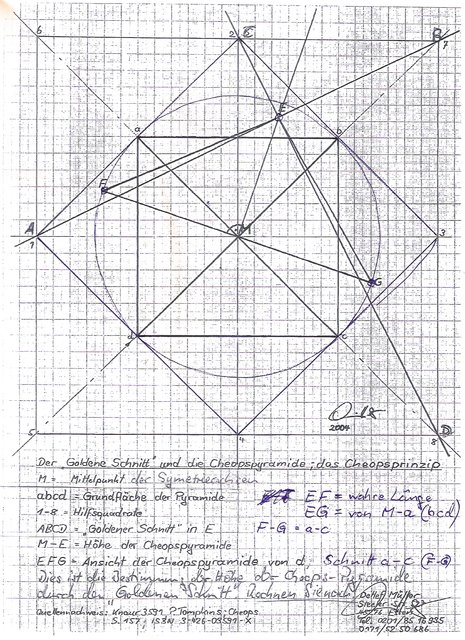 6
2
C
B
7
E
a
b
F
A
1
M
3
G
d
c
2004
5
4
8
D
Der „Goldene Schnitt" und die Cheopspyramide; das Cheopsprinzip
M = Mittelpunkt der Symetrieachsen
abcd = Grundfläche der Pyramide
EF = wahre Länge
1-8 = Hilfsquadrate
EG = von M-a (bcd)
ABCD = "Goldener Schnitt" in E
F-G = a-c
M-E = Höhe der Cheopspyramide
EFG = Ansicht der Cheopspyramide von d, Schnitt a-c (F-G)
Dies ist die Bestimmung d. Höhe der Cheops-Pyramide
durch den "Goldenen Schnitt" Rechnen Sie nach!
Quellennachweis: Knaur 3591 P. Tompkins; Cheops
S. 457; ISBN 3-426-03591-X
Detlef Müller
45276 Essen
Tel. 0201/85 76 935